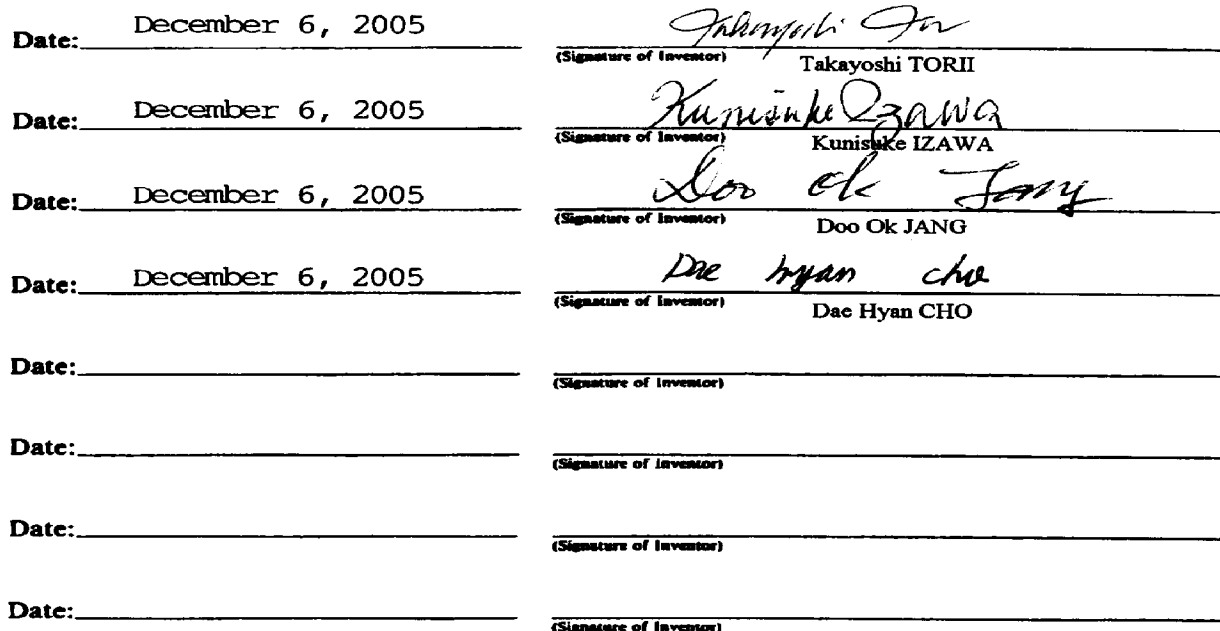 Date: December 6, 2005 Takayoshi
(Signature of Inventor) Takayoshi TORII
Date: December 6, 2005 Kunisuke Izawa
(Signature of Inventor) Kunisuke IZAWA
Date: December 6, 2005 Doo Ok Jang
(Signature of Inventor) Doo Ok JANG
Date: December 6, 2005 Dae hyan cho
(Signature of Inventor) Dae Hyan CHO
Date:
(Signature of Inventor)
Date:
(Signature of Inventor)
Date:
(Signature of Inventor)
Date:
(Signature of Inventor)